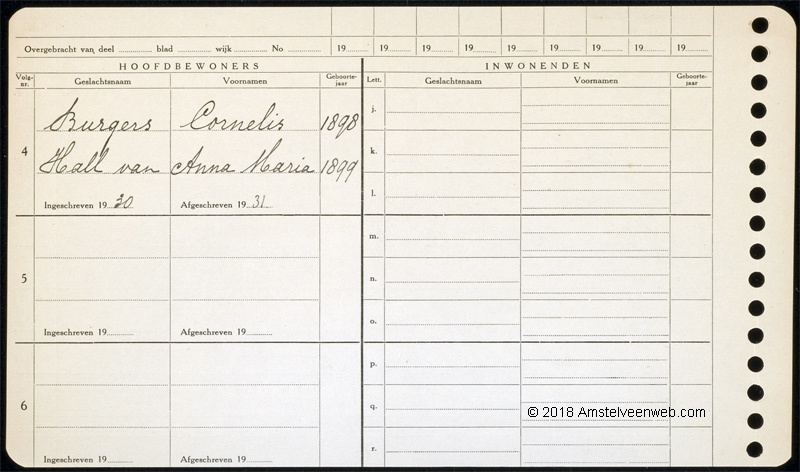 Overgebracht van deel ............ blad ............ wijk ............ No ............ 19...... 19...... 19...... 19...... 19...... 19...... 19...... 19...... 19......
HOOFDBEWONERS INWONENDEN
Volg-nr. Geslachtsnaam Voornamen Geboorte-jaar Lett. Geslachtsnaam Voornamen Geboorte-jaar
j.
Burgers Cornelis 1898
4 k.
Hall van Anna Maria 1899
l.
Ingeschreven 19 30 Afgeschreven 19 31
m.
5 n.
o.
Ingeschreven 19...... Afgeschreven 19......
p.
6 q.
© 2018 Amstelveenweb.com
r.
Ingeschreven 19...... Afgeschreven 19......